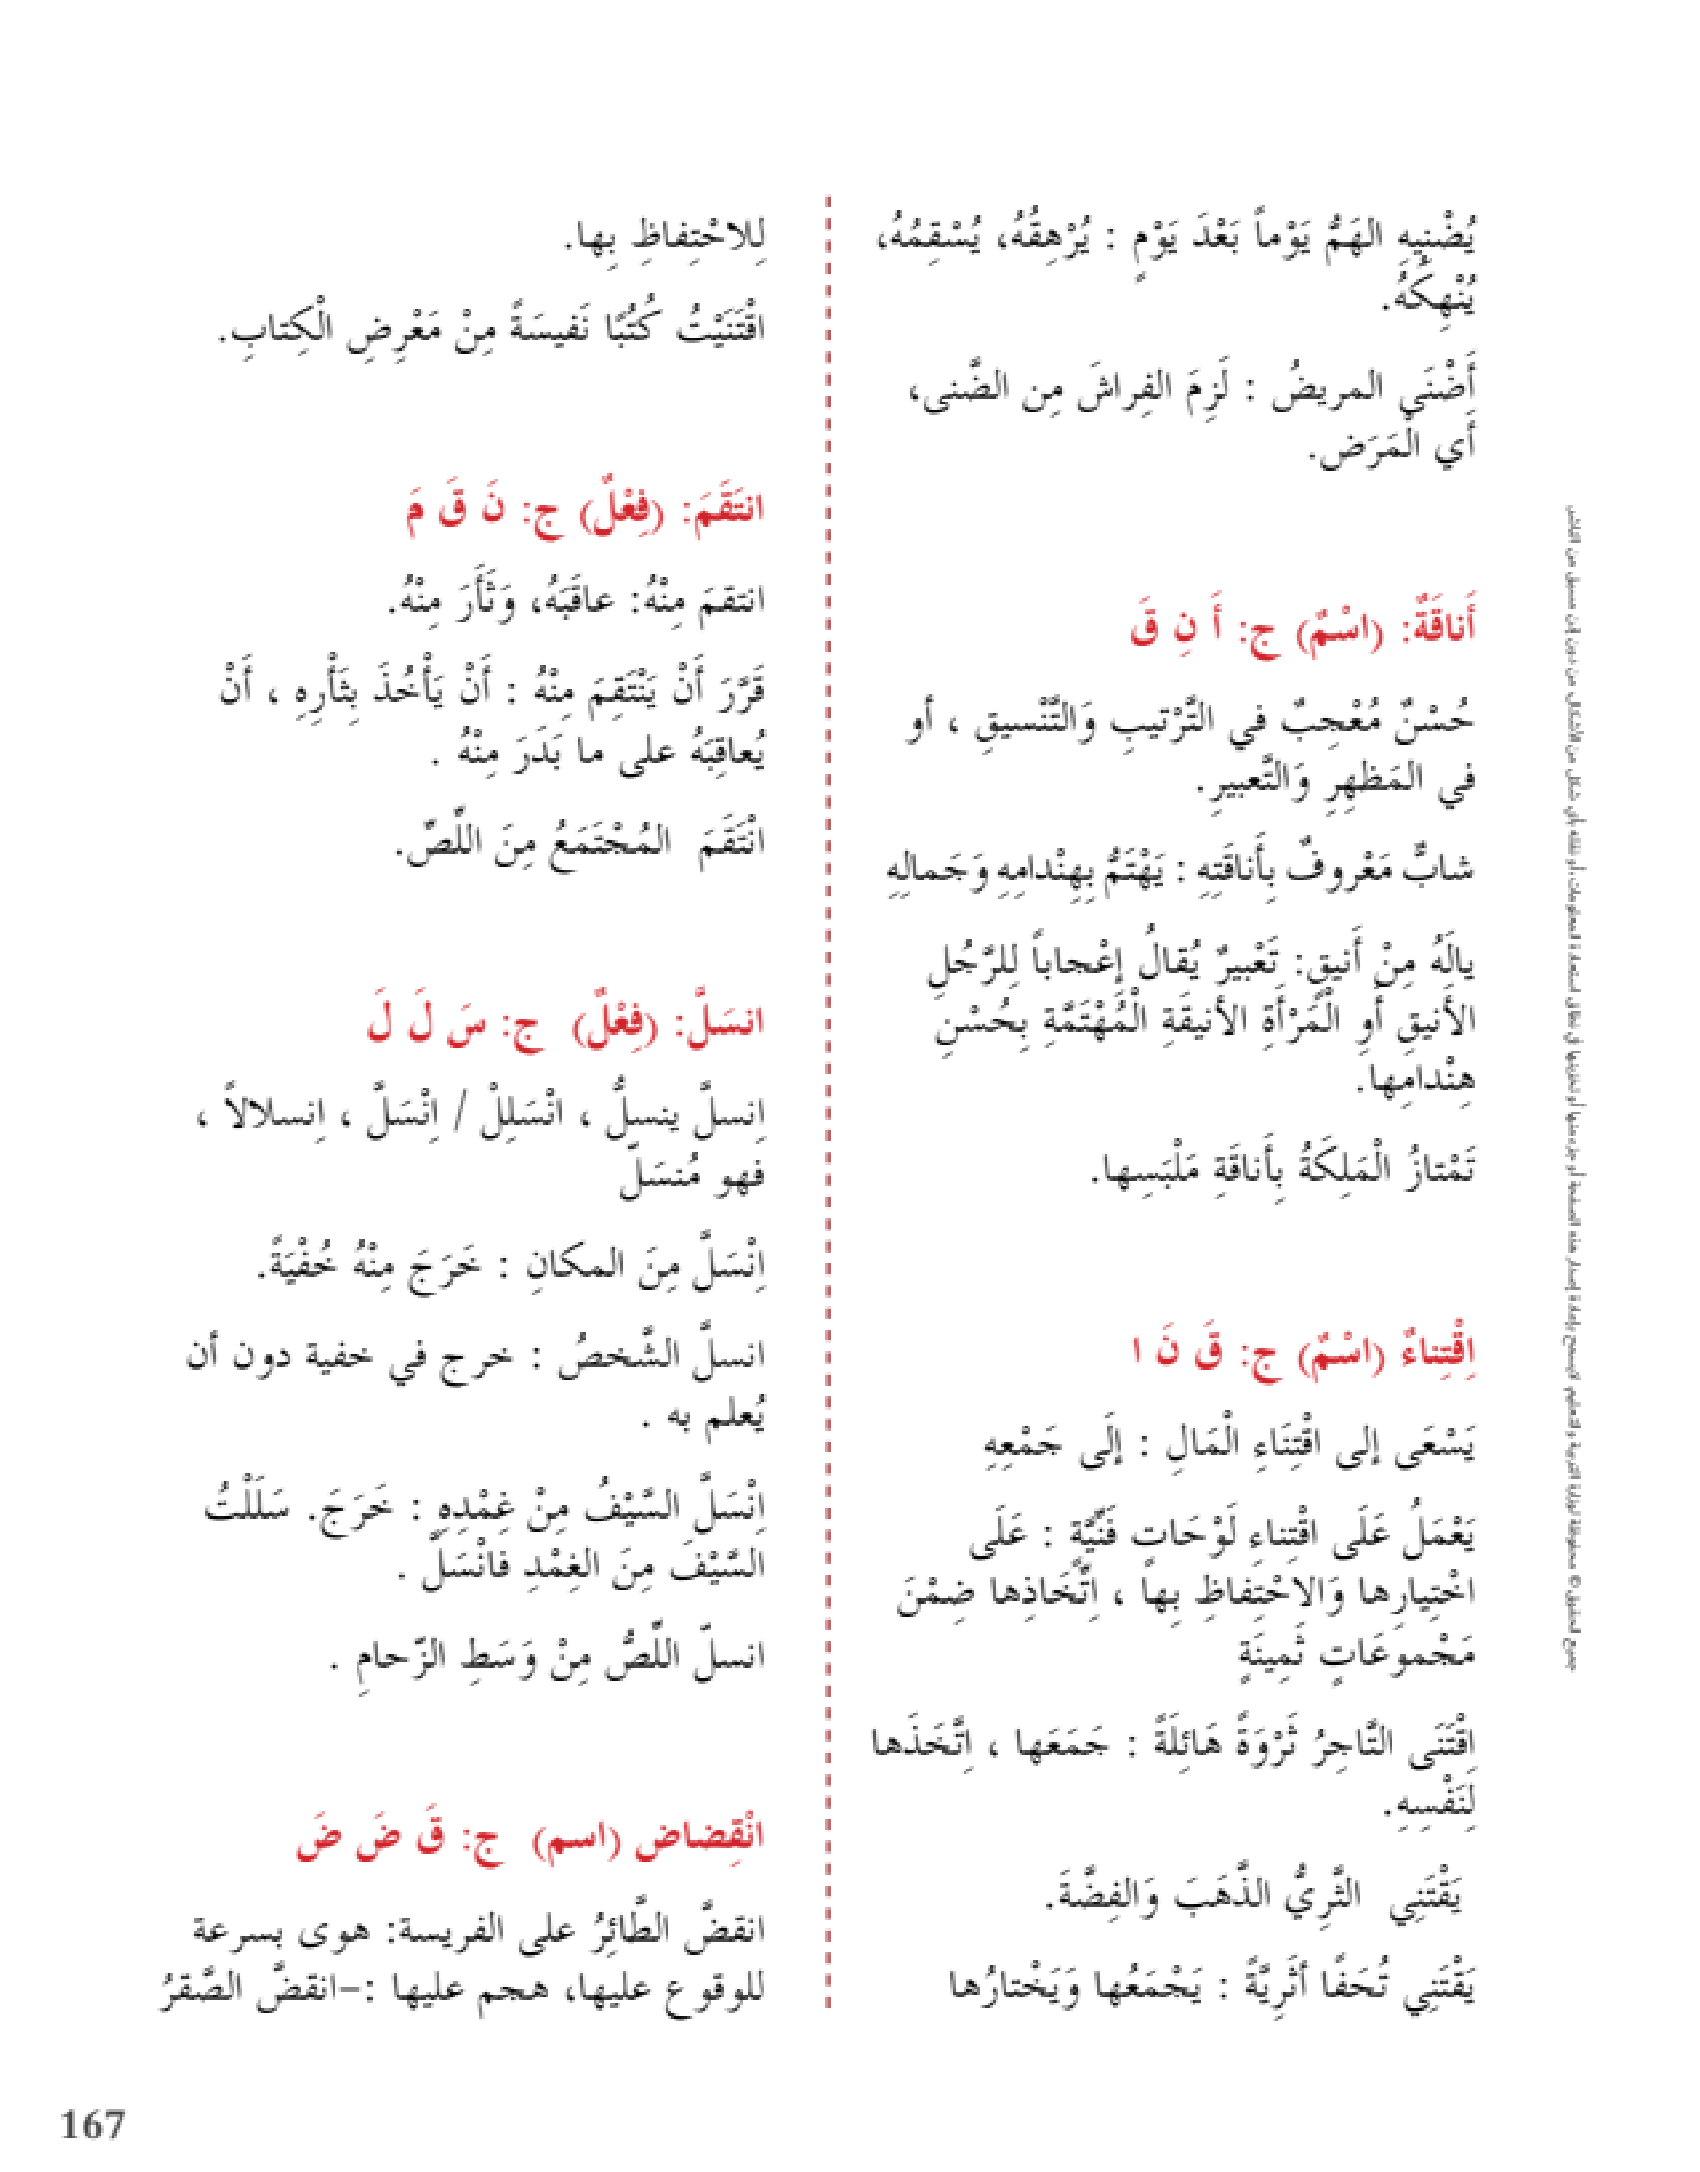 يُضْنِيهِ الهَمُّ يَوْماً بَعْدَ يَوْمٍ : يُرْهِقُهُ، يُسْقِمُهُ،
يُنْهِكُهُ.
أَضْنَى المريضُ : لَزِمَ الفِراشَ مِن الضَّنى،
أَي الْمَرَض.
أَناقَةٌ: (اسْمٌ) ج: أَ نِ قَ
حُسْنٌ مُعْجِبٌ في التَّرْتيبِ وَالتَّنْسيقِ ، أو
في المَظهِرِ وَالتَّعبيرِ.
شابٌّ مَعْروفٌ بِأَناقَتِهِ : يَهْتَمُّ بِهِنْدامِهِ وَجَمالِهِ
يالَهُ مِنْ أَنيقٍ: تَعْبيرٌ يُقالُ إعْجاباً لِلرَّجُلِ
الأَنيقِ أَوِ الْمَرْأَةِ الأَنيقَةِ الْمُهْتَمَّةِ بِحُسْنِ
هِنْدامِها.
تَمْتازُ الْمَلِكَةُ بِأَناقَةِ مَلْبَسِها.
اِقْتِناءٌ (اسْمٌ) ج: قَ نَ ا
يَسْعَى إلى اقْتِنَاءِ الْمَالِ : إلَى جَمْعِهِ
يَعْمَلُ عَلَى اقْتِناءِ لَوْحَاتٍ فَنِّيَّةٍ : عَلَى
اخْتِيارِها وَالاحْتِفاظِ بِها ، اِتِّخَاذِها ضِمْنَ
مَجْموعَاتٍ ثَمِينَةٍ
اِقْتَنَى التَّاجِرُ ثَرْوَةً هَائِلَةً : جَمَعَها ، اِتَّخَذَها
لِنَفْسِهِ.
يَقْتَنِي الثَّرِيُّ الذَّهَبَ وَالفِضَّةَ.
يَقْتَنِي تُحَفًا أَثَرِيَّةً : يَجْمَعُها وَيَخْتارُها
لِلاحْتِفاظِ بِها.
اقْتَنَيْتُ كُتُبًا نَفيسَةً مِنْ مَعْرِضِ الْكِتابِ.
انتَقَمَ: (فِعْلٌ) ج: نَ قَ مَ
انتقمَ مِنْهُ: عاقَبَهُ، وَثَأَرَ مِنْهُ.
قَرَّرَ أَنْ يَنْتَقِمَ مِنْهُ : أَنْ يَأْخُذَ بِثَأْرِهِ ، أَنْ
يُعاقِبَهُ على ما بَدَرَ مِنْهُ .
انْتَقَمَ المُجْتَمَعُ مِنَ اللِّصِّ.
انسَلَّ: (فِعْلٌ) ج: سَ لَ لَ
اِنسلَّ ينسلُّ ، انْسَلِلْ / اِنْسَلَّ ، اِنسلالاً ،
فهو مُنسَلّ
اِنْسَلَّ مِنَ المكانِ : خَرَجَ مِنْهُ خُفْيَةً.
انسلَّ الشَّخصُ : خرج في خفية دون أن
يُعلم به .
اِنْسَلَّ السَّيْفُ مِنْ غِمْدِهِ : خَرَجَ. سَلَلْتُ
السَّيْفَ مِنَ الغِمْدِ فانْسَلَّ .
انسلّ اللِّصُّ مِنْ وَسَطِ الزّحامِ .
انْقِضاض (اسم) ج: قَ ضَ ضَ
انقضَّ الطَّائِرُ على الفريسة: هوى بسرعة
للوقوع عليها، هجم عليها :-انقضَّ الصَّقرُ
167
جميع الحقوق © محفوظة لوزارة التربية والتعليم. لايسمح بإعادة إصدار هذه الصفحة أو جزء منها أو تخزينها في نطاق استعادة المعلومات، أو نقله بأي شكل من الأشكال، من دون إذن مسبق من الناشر.